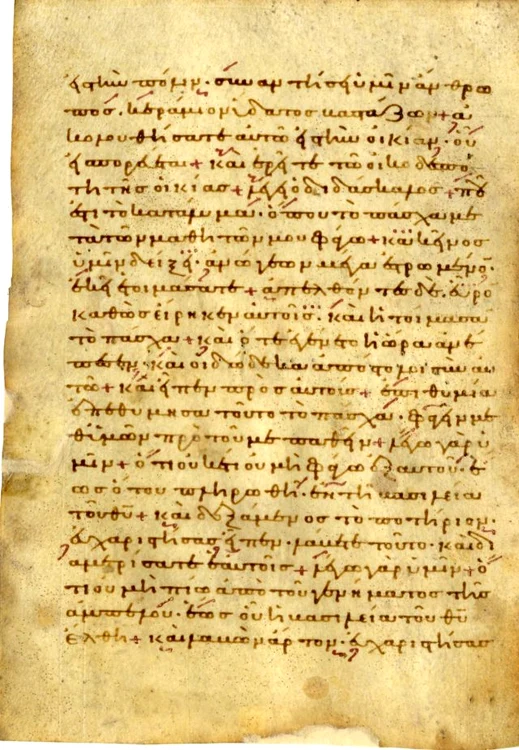 εις την πόλιν· συναντήσει ὑμῖν ἄνθρω
πος. κεράμιον ὕδατος βαστάζων+ ἀ
κολουθήσατε αὐτῶ εἰς τὴν οἰκίαν· οὗ
εἰσπορεύεται+ καὶ ἐρεῖτε τῶ οἰκοδεσπό
τῃ τῆς οἰκίας+ λέγει ὁ διδάσκαλος+ ποῦ
ἐστὶ τὸ κατάλυμα· ὅπου τὸ πάσχα με
τὰ τῶν μαθητῶν μου φάγω+ κἀκεῖνος
ὑμῖν δείξει· ἀνώγεων μέγα ἐστρωμένον·
ἐκεῖ ἑτοιμάσατε+ ἀπελθόντες δὲ. εὗρον
καθὼς εἴρηκεν αὐτοῖς· καὶ ἡτοίμασαν
τὸ πάσχα+ καὶ ὅτε ἐγένετο ἡ ὥρα ἀνέ
πεσεν· καὶ οἱ δώδεκα ἀπόστολοι σὺν αὐ
τῶ+ καὶ εἶπεν πρὸς αὐτούς+ ἐπιθυμία
ἐπεθύμησα τοῦτο τὸ πάσχα· φαγεῖν με
θ' ὑμῶν πρὸ τοῦ με παθεῖν+ λέγω γὰρ ὑ
μῖν+ ὅτι οὐκέτι οὐ μὴ φάγω ἐξ αὐτοῦ· ἕ
ως ὅτου πληρωθῇ· ἐν τῇ βασιλεία
τοῦ θυ+ καὶ δεξάμενος τὸ ποτήριον·
εὐχαριστήσας εἶπεν· λάβετε τοῦτο· καὶ δι
αμερίσατε ἑαυτοῖς+ λέγω γὰρ ὑμῖν+ ὅ
τι οὐ μὴ πίω ἀπὸ τοῦ γενήματος τῆς
ἀμπέλου· ἕως οὗ ἡ βασιλεία τοῦ θυ
ἔλθῃ+ καὶ λαβὼν ἄρτον· εὐχαριστήσας